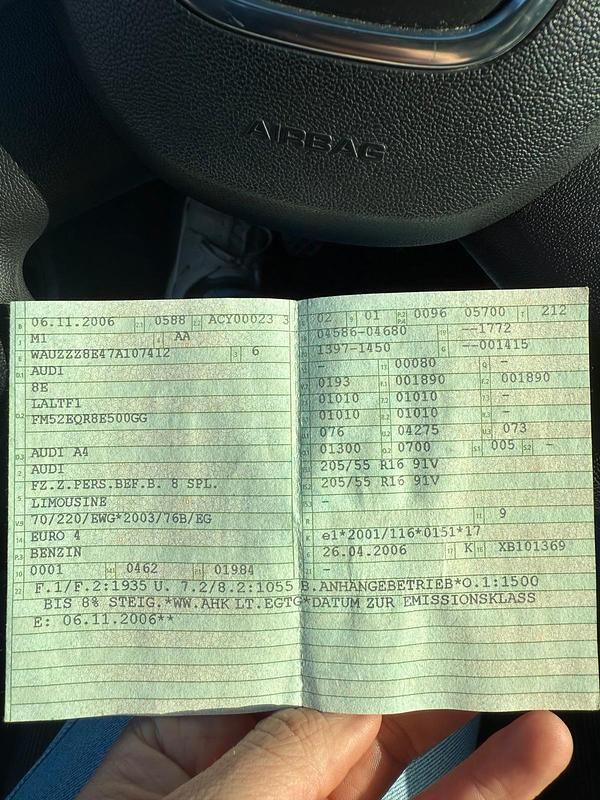 AIRBAG
06.11.2006 0588 ACY00023 3
M1 AA
WAUZZZ8E47A107412 6
AUDI
8E
LALTF1
FM52EQR8E500GG
AUDI A4
AUDI
FZ.Z.PERS.BEF.B. 8 SPL.
LIMOUSINE
70/220/EWG*2003/76B/EG
EURO 4
BENZIN
0001 0462 01984
02 01 0096 05700 212
04586-04680 --1772
1397-1450 --001415
- 00080 -
0193 001890 001890
01010 01010 -
01010 01010 -
076 04275 073
01300 0700 005 -
205/55 R16 91V
205/55 R16 91V
-
9
e1*2001/116*0151*17
26.04.2006 K XB101369
-
F.1/F.2:1935 U. 7.2/8.2:1055 B.ANHÄNGEBETRIEB*O.1:1500
BIS 8% STEIG.*WW.AHK LT.EGTG*DATUM ZUR EMISSIONSKLASS
E: 06.11.2006**